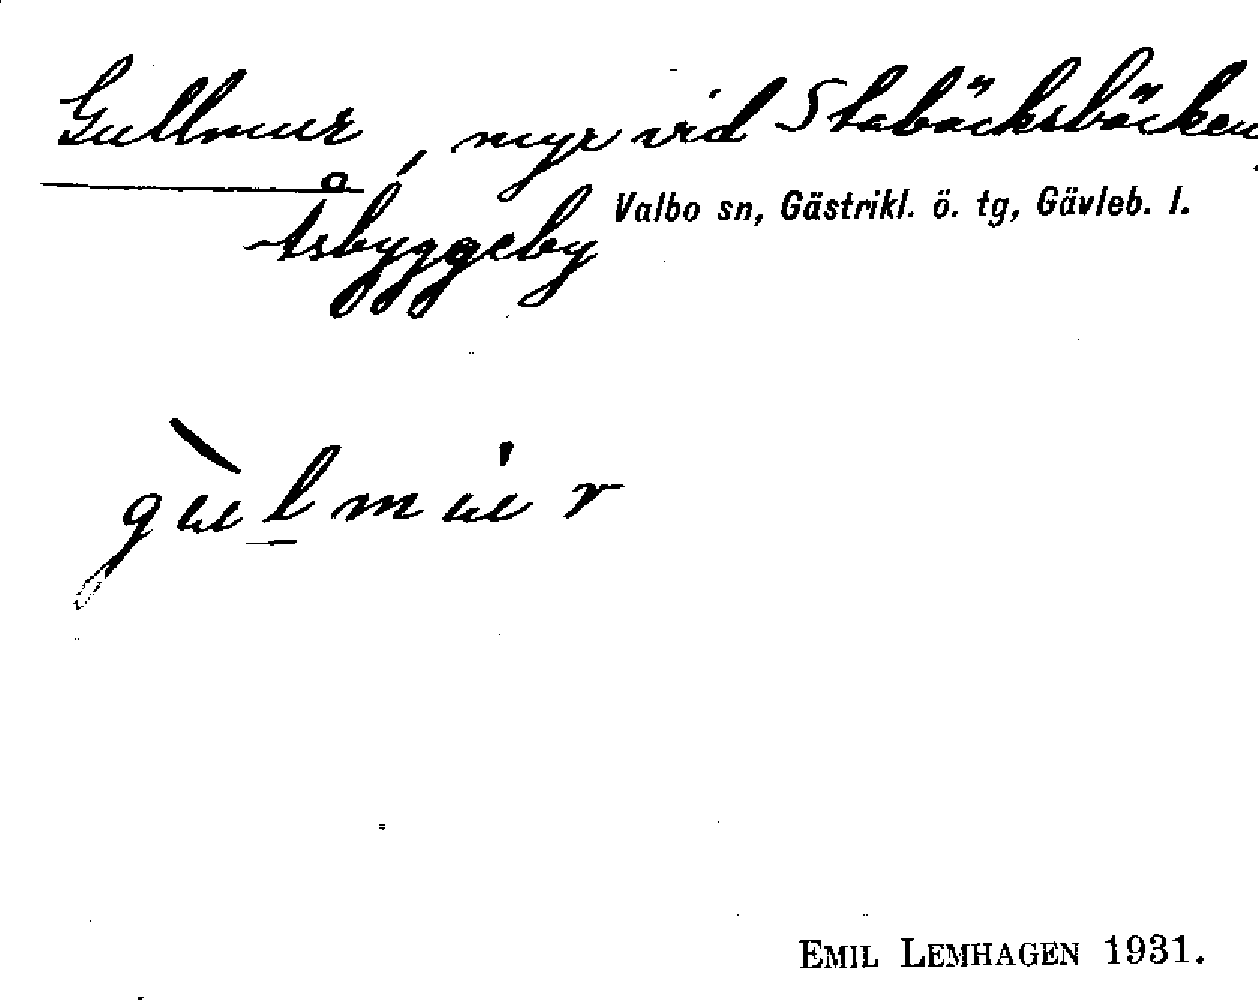 Gullmur, myr vid Stabäcksbäcken,
Åsbyggeby Valbo sn, Gästrikl. ö. tg, Gävleb. l.
gùlmu̍r
EMIL LEMHAGEN 1931.